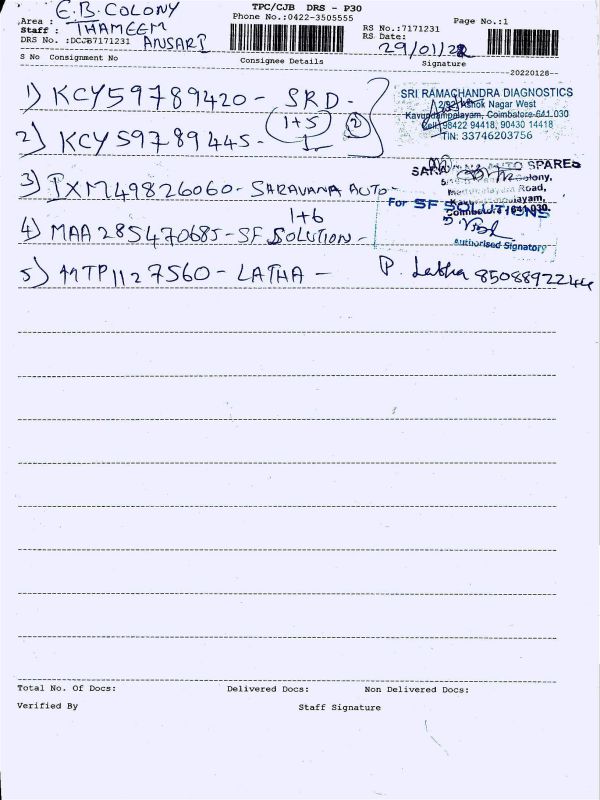 E.B. COLONY
TPC/CJB DRS - P30
Area :
Phone No.:0422-3505555
Page No.:1
Staff : THAMEEM
RS No.:7171231
DRS No. :DCJB7171231 ANSARI
RS Date: 29/01/22
S No Consignment No Consignee Details Signature
20220128
1) KCY59789420 - SRD -
1+5
2
2) KCY59789445 -
SRI RAMACHANDRA DIAGNOSTICS
Ashok Nagar West
Kavundampalayam, Coimbatore-641 030
Cell: 98422 94418, 90430 14418
TIN: 33746203756
3) IXM49826060 - SARAVANA AUTO -
SPARES
Colony,
Road,
Coimbatore - 641 030
1+6
4) MAA285470685 - SF SOLUTION -
For SF SOLUTIONS
Authorised Signatory
5) MTP1127560 - LATHA -
P. Latha 8508892244
Total No. Of Docs: Delivered Docs: Non Delivered Docs:
Verified By Staff Signature